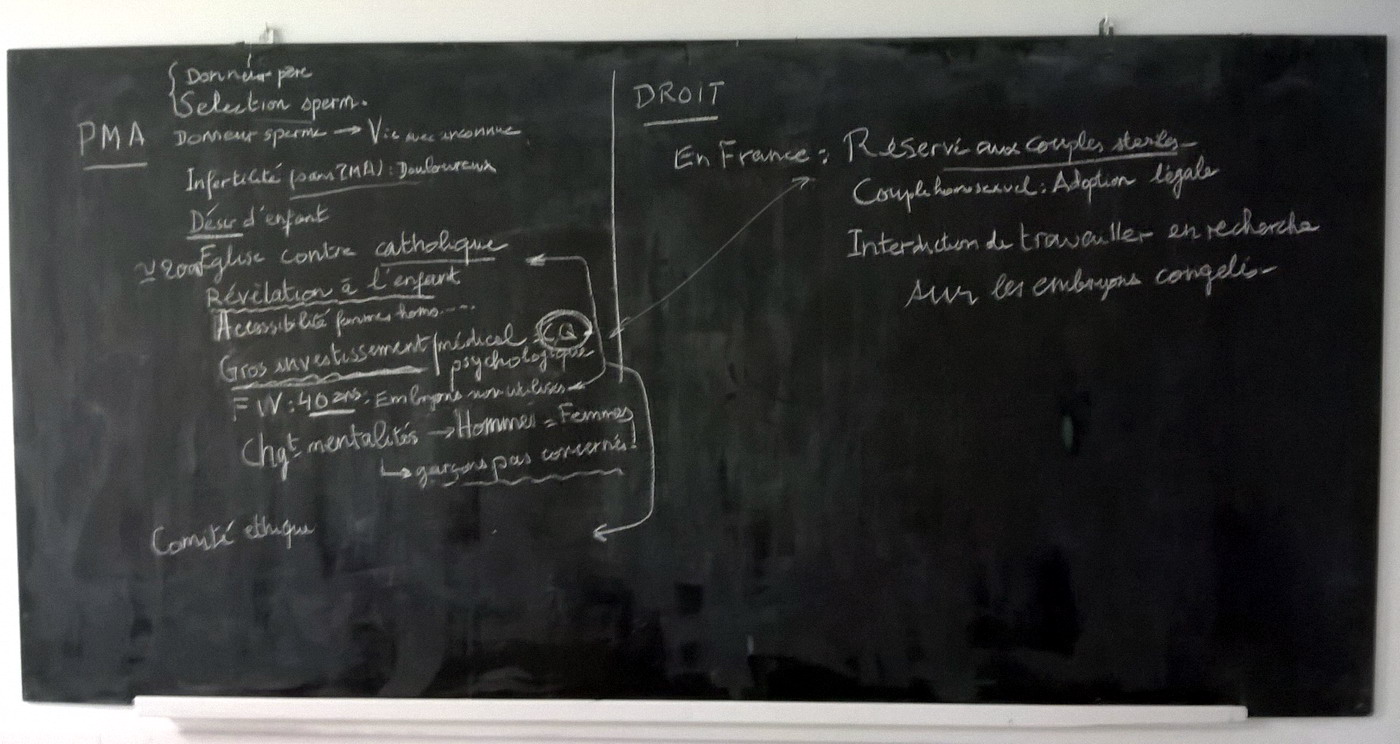 Donneur père
Selection sperm.
PMA
Donneur sperme → Vie avec inconnue
Infertilité (sans PMA) : Douloureux
Désir d'enfant
Église contre catholique
Révélation à l'enfant
Accessibilité femmes homo....
Gros investissement / médical
psychologique
FW : 40 ans : Embryons non utilisés
Chgt mentalités → Hommes = Femmes
↳ garçons pas concernés!
Comité ethique
DROIT
En France : Réservé aux couples steriles
Couple homosexuel : Adoption légale
Interdiction de travailler en recherche
sur les embryons congelés